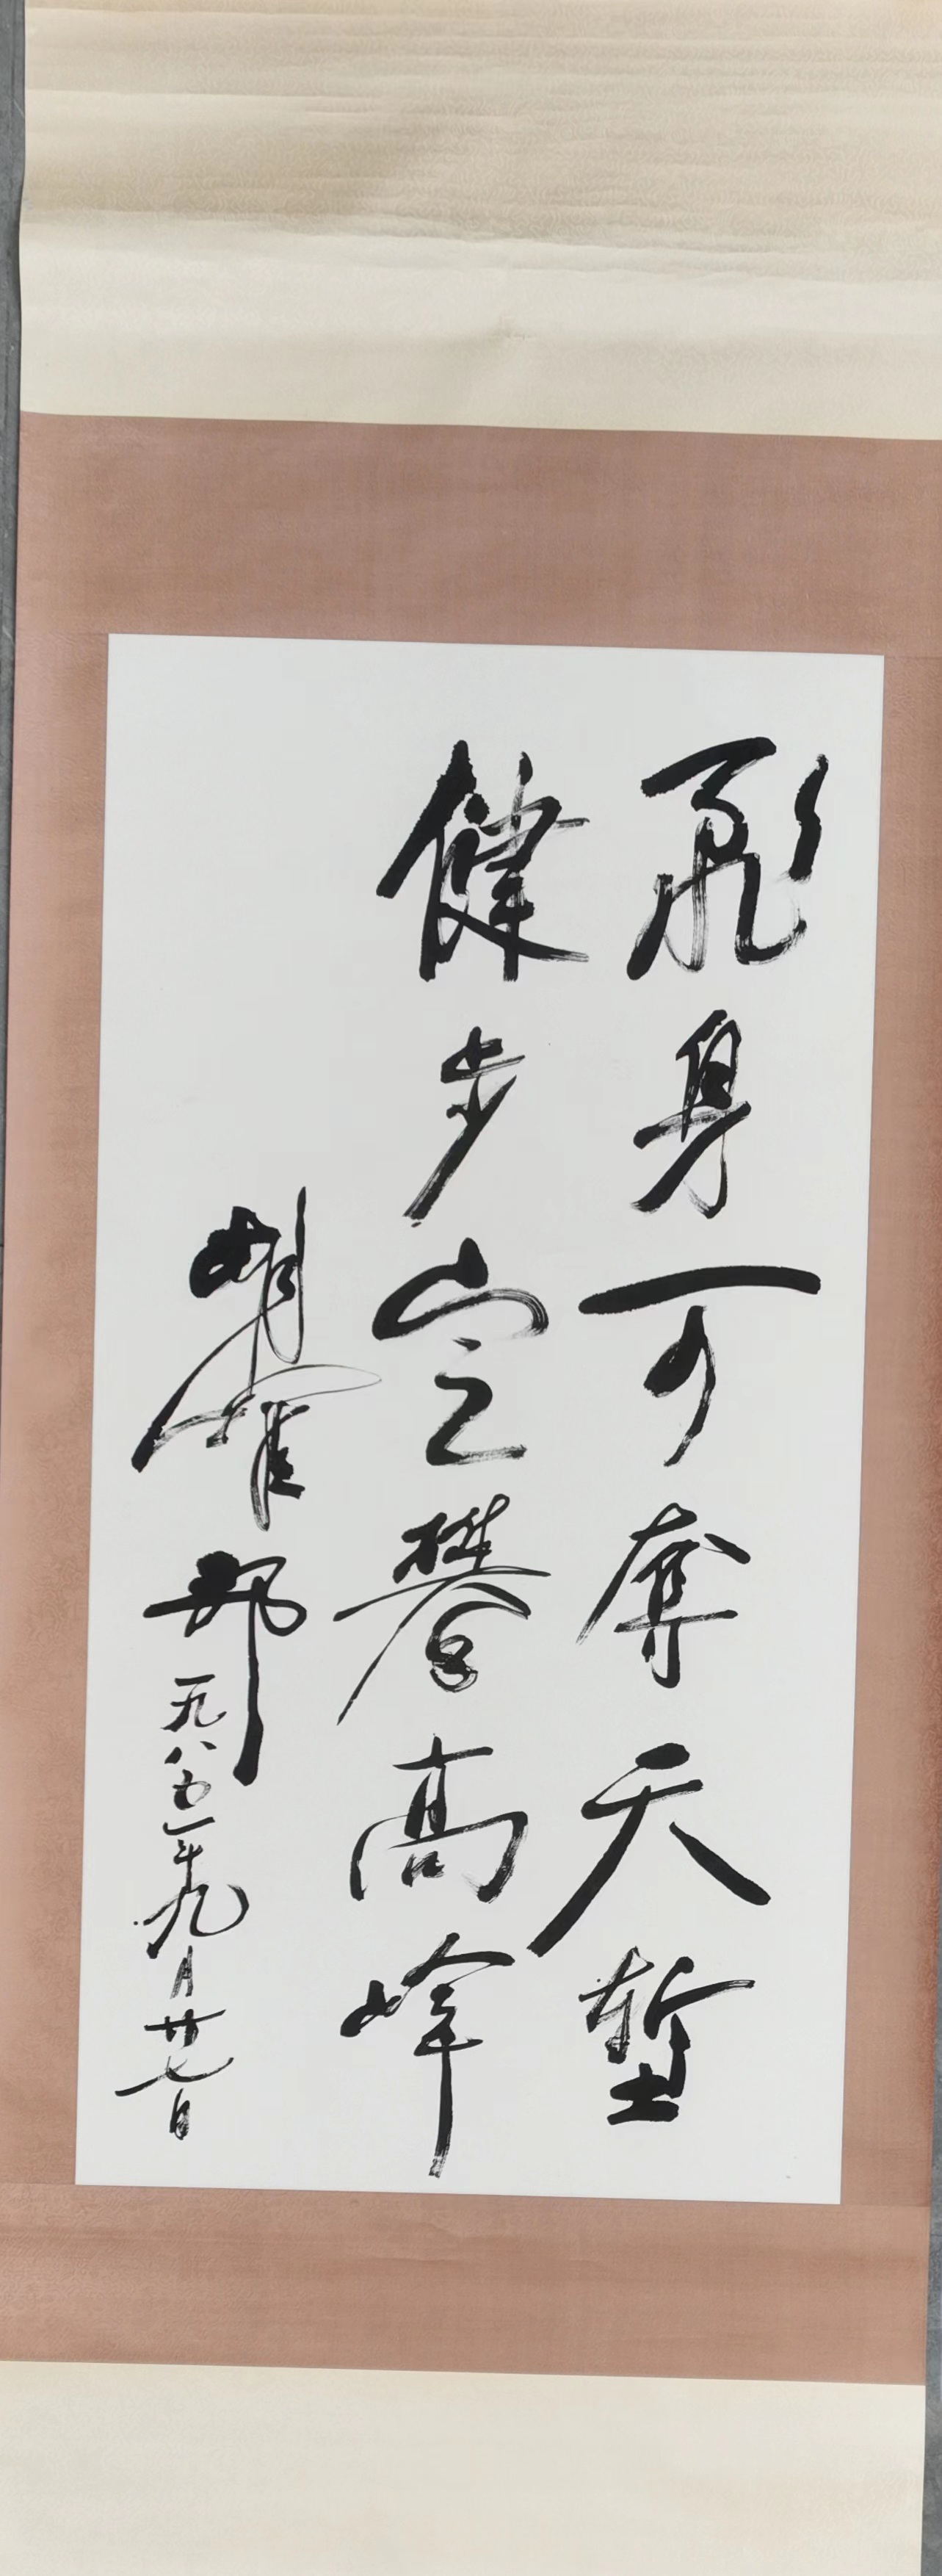 飛身可奪天塹
健步定攀高峰
胡耀邦 一九八五年九月廿七日